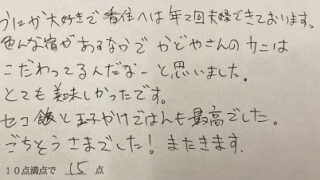 うにが大好きで香住へは年2回夫婦できております。
色んな宿があるなかで かどやさんのカニは
こだわってるんだなーと思いました。
とても美味しかったです。
セコ飯と玉子かけごはんも最高でした。
ごちそうさまでした！またきます。
10点満点で 15 点